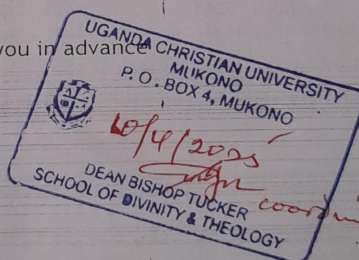 you in advance
UGANDA CHRISTIAN UNIVERSITY
MUKONO
P. O. BOX 4, MUKONO
10/4/2025
DEAN BISHOP TUCKER
SCHOOL OF DIVINITY & THEOLOGY